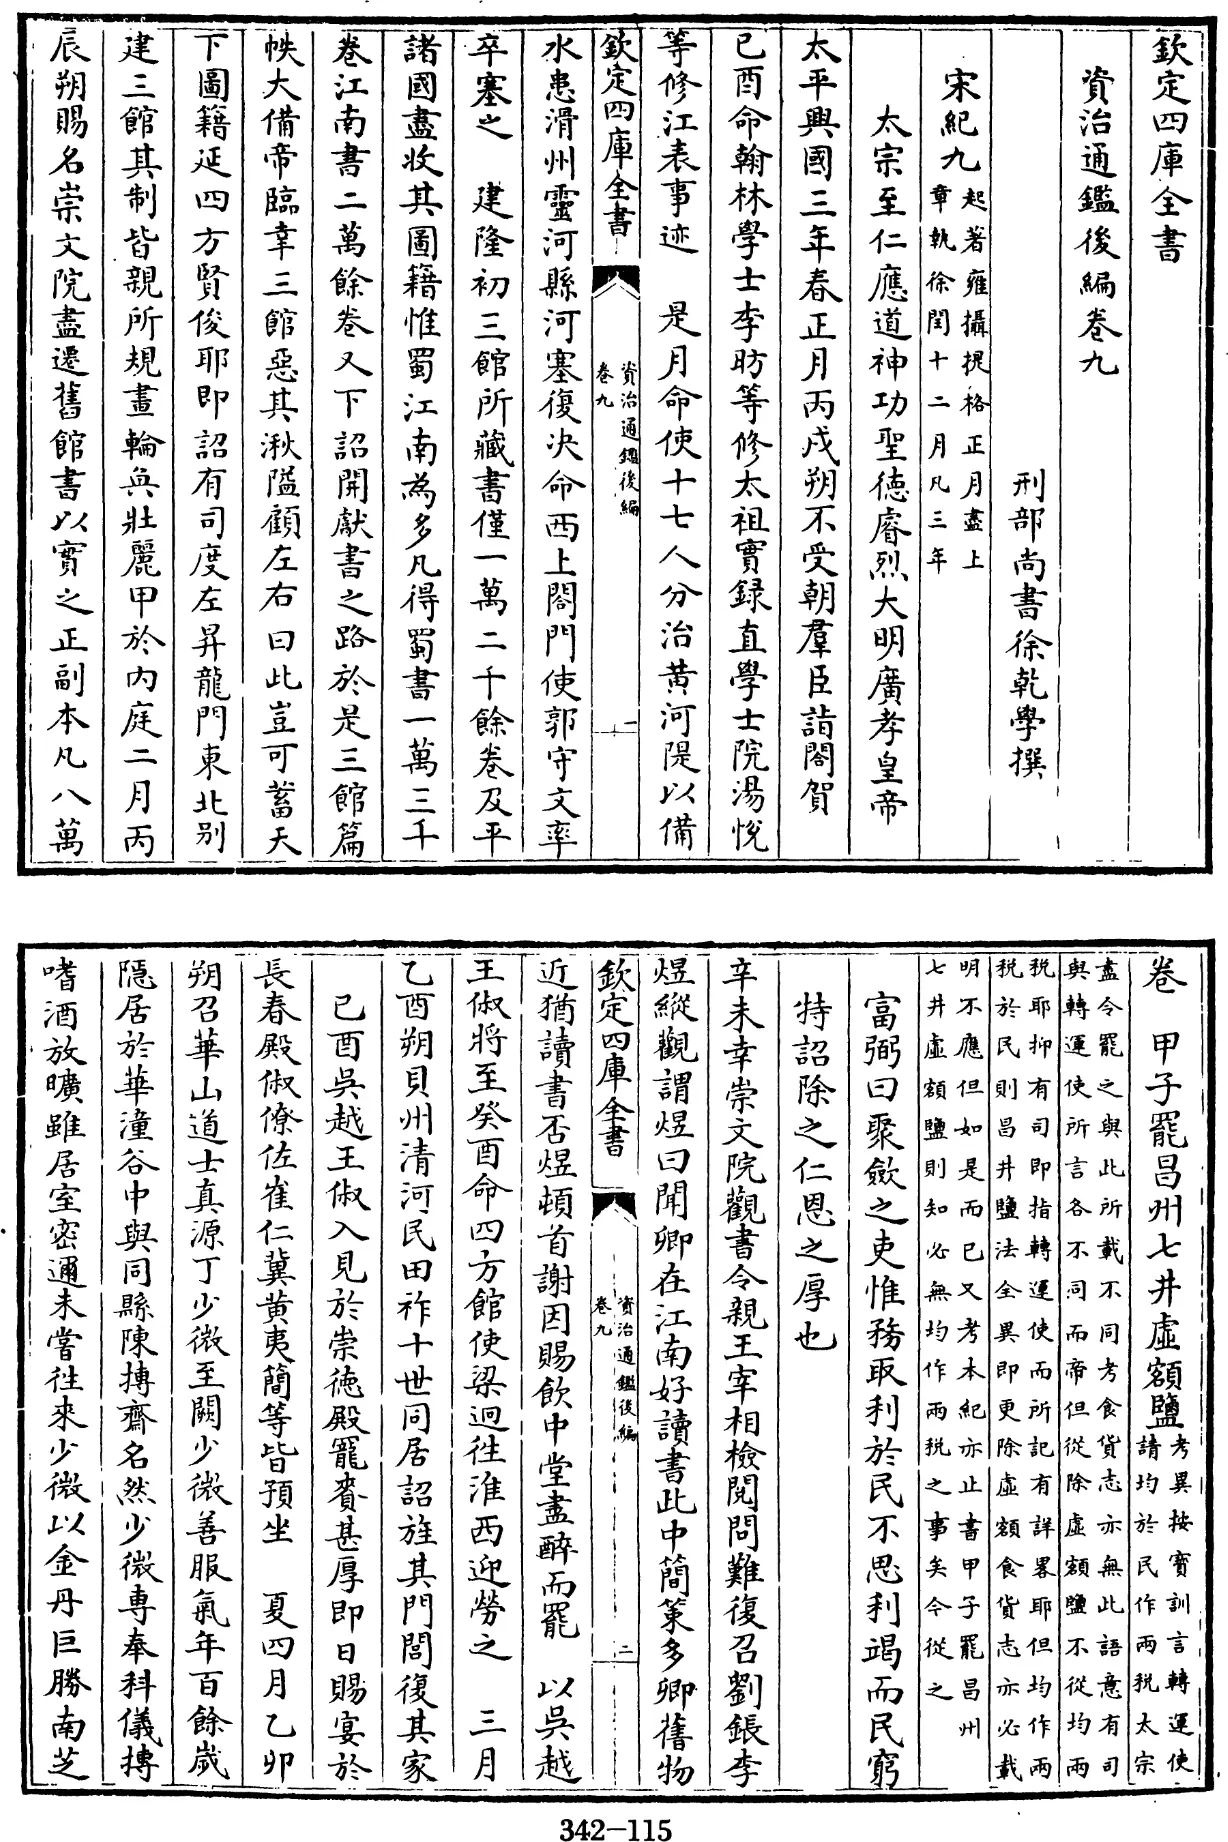 欽定四庫全書
資治通鑑後編卷九
刑部尚書徐乾學撰
宋紀九起著雍攝提格正月盡上
章執徐閏十二月凡三年
太宗至仁應道神功聖德睿烈大明廣孝皇帝
太平興國三年春正月丙戌朔不受朝羣臣詣閤賀
己酉命翰林學士李昉等修太祖實録直學士院湯悅
等修江表事迹　是月命使十七人分治黄河隄以備
欽定四庫全書
資治通鑑後編
卷九
一
水患滑州靈河縣河塞復決命西上閤門使郭守文率
卒塞之　建隆初三館所藏書僅一萬二千餘卷及平
諸國盡收其圖籍惟蜀江南為多凡得蜀書一萬三千
卷江南書二萬餘卷又下詔開獻書之路於是三館篇
帙大備帝臨幸三館惡其湫隘顧左右曰此豈可蓄天
下圖籍延四方賢俊耶即詔有司度左昇龍門東北别
建三館其制皆親所規畫輪奐壯麗甲於内庭二月丙
辰朔賜名崇文院盡遷舊館書以實之正副本凡八萬
卷　甲子罷昌州七井虛額鹽考異按寳訓言轉運使
請均於民作兩税太宗
盡令罷之與此所載不同考食貨志亦無此語意有司
與轉運使所言各不同而帝但從除虛額鹽不從均兩
税耶抑有司即指轉運使而所記有詳畧耶但均作兩
税於民則昌井鹽法全異即更除虛額食貨志亦必載
明不應但如是而已又考本紀亦止書甲子罷昌州
七井虛額鹽則知必無均作兩税之事矣今從之
富弼曰聚斂之吏惟務取利於民不思利竭而民窮
特詔除之仁恩之厚也
辛未幸崇文院觀書令親王宰相檢閱問難復召劉鋹李
煜縱觀謂煜曰聞卿在江南好讀書此中簡策多卿舊物
欽定四庫全書
資治通鑑後編
卷九
二
近猶讀書否煜頓首謝因賜飲中堂盡醉而罷　以吳越
王俶將至癸酉命四方館使梁迥往淮西迎勞之　三月
乙酉朔貝州清河民田祚十世同居詔旌其門閭復其家
己酉吳越王俶入見於崇德殿寵賚甚厚即日賜宴於
長春殿俶僚佐崔仁冀黄夷簡等皆預坐　夏四月乙卯
朔召華山道士真源丁少微至闕少微善服氣年百餘歲
隱居於華潼谷中與同縣陳摶齊名然少微專奉科儀摶
嗜酒放曠雖居室密邇未嘗往來少微以金丹巨勝南芝
342-115